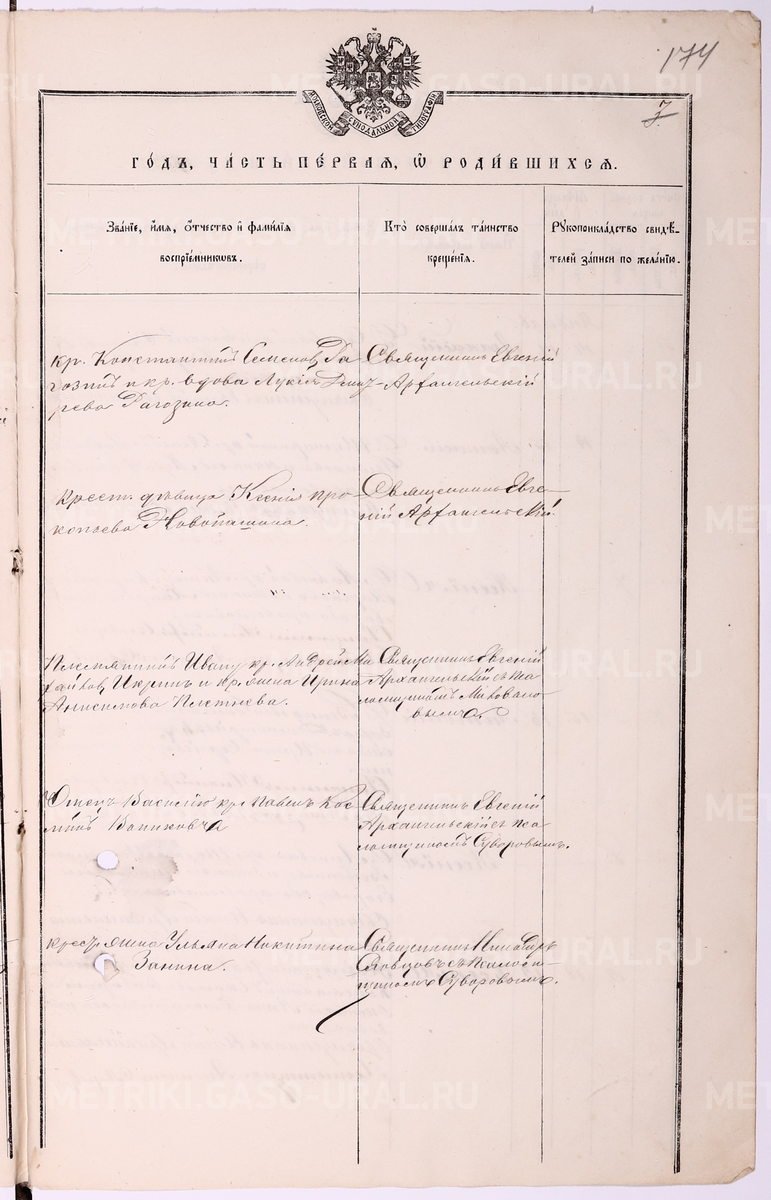 174
7
МОСКОВСКОЙ СѴНОДАЛЬНОЙ ТИПОГРАФІИ
ГО́ДЪ, ЧА́СТЬ ПЕ́РВАЯ, Ѡ҆ РОДИ́ВШИХСЯ.
Зва́нїе, и҆́мя, ѻ҆́тчество и҆ фами́лїя
воспрїе́мникωвъ.
Кто̀ соверша́лъ та́инство
креще́нїя.
Рꙋкоприкла́дство свидѣ́-
телей за́писи по жела́нїю.
кр. Константинъ Семеновъ Ра
гозинъ и кр. вдова Лукія
Рагозина.
Священникъ Евгеній
Архангельскій
крест. дѣвица Ксенія про-
копьева Новопашина.
Священникъ Евге-
ній Архангельскій.
Племянникъ Ивану кр. Андрей Ми
хайловъ Икринъ и кр. жена Ирина
Анисимова Плетнева.
Священникъ Евгеній
Архангельскій съ пса
ломщикомъ
Отецъ Василію кр. Павелъ Кос
Священникъ Евгеній
Архангельскій съ пса
ломщикомъ Суворовымъ.
крест. жена Ульяна Никитина
Занина.
Священникъ
Словцовъ съ псалом-
щикомъ Суворовымъ.
METRIKI.GASO-URAL.RU